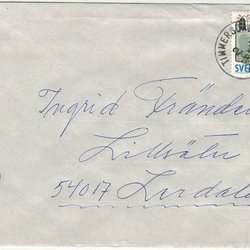 TIMMERSD
SVE
Ingrid Frändn
Lillsätn
54017 Lerdala